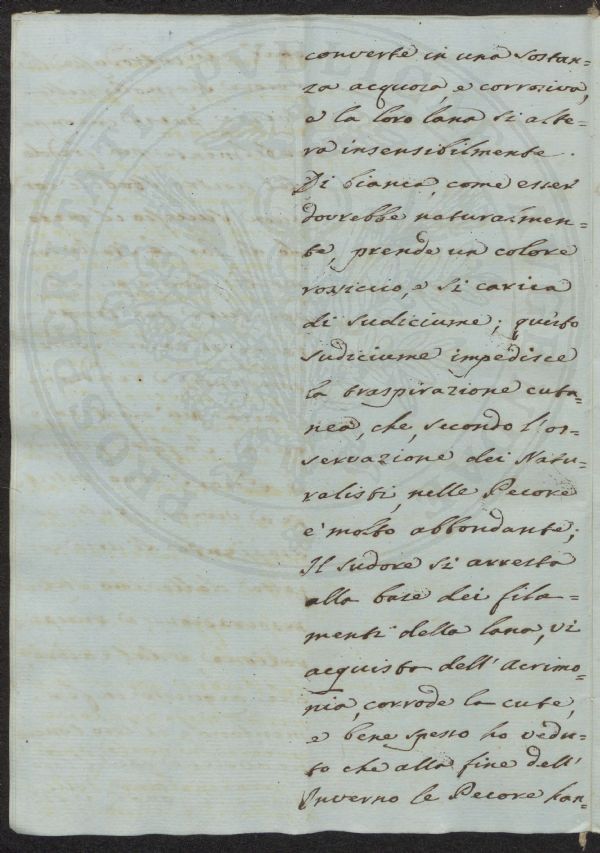 converte in una sostan=
za acquosa, e corrosiva,
e la loro lana si alte=
ra insensibilmente.
Di bianca, come esser
dovrebbe naturalmen=
te, prende un colore
rossiccio, e si carica
di sudiciume; questo
sudiciume impedisce
la traspirazione cuta=
nea, che, secondo l'os=
servazione dei Natu=
ralisti, nelle Pecore
è molto abbondante;
Il sudore si arresta
alla base dei fila=
menti della lana, vi
acquista dell'Acrimo=
nia, corrode la cute,
e bene spesso ho vedu=
to che alla fine dell'
Inverno le Pecore han=